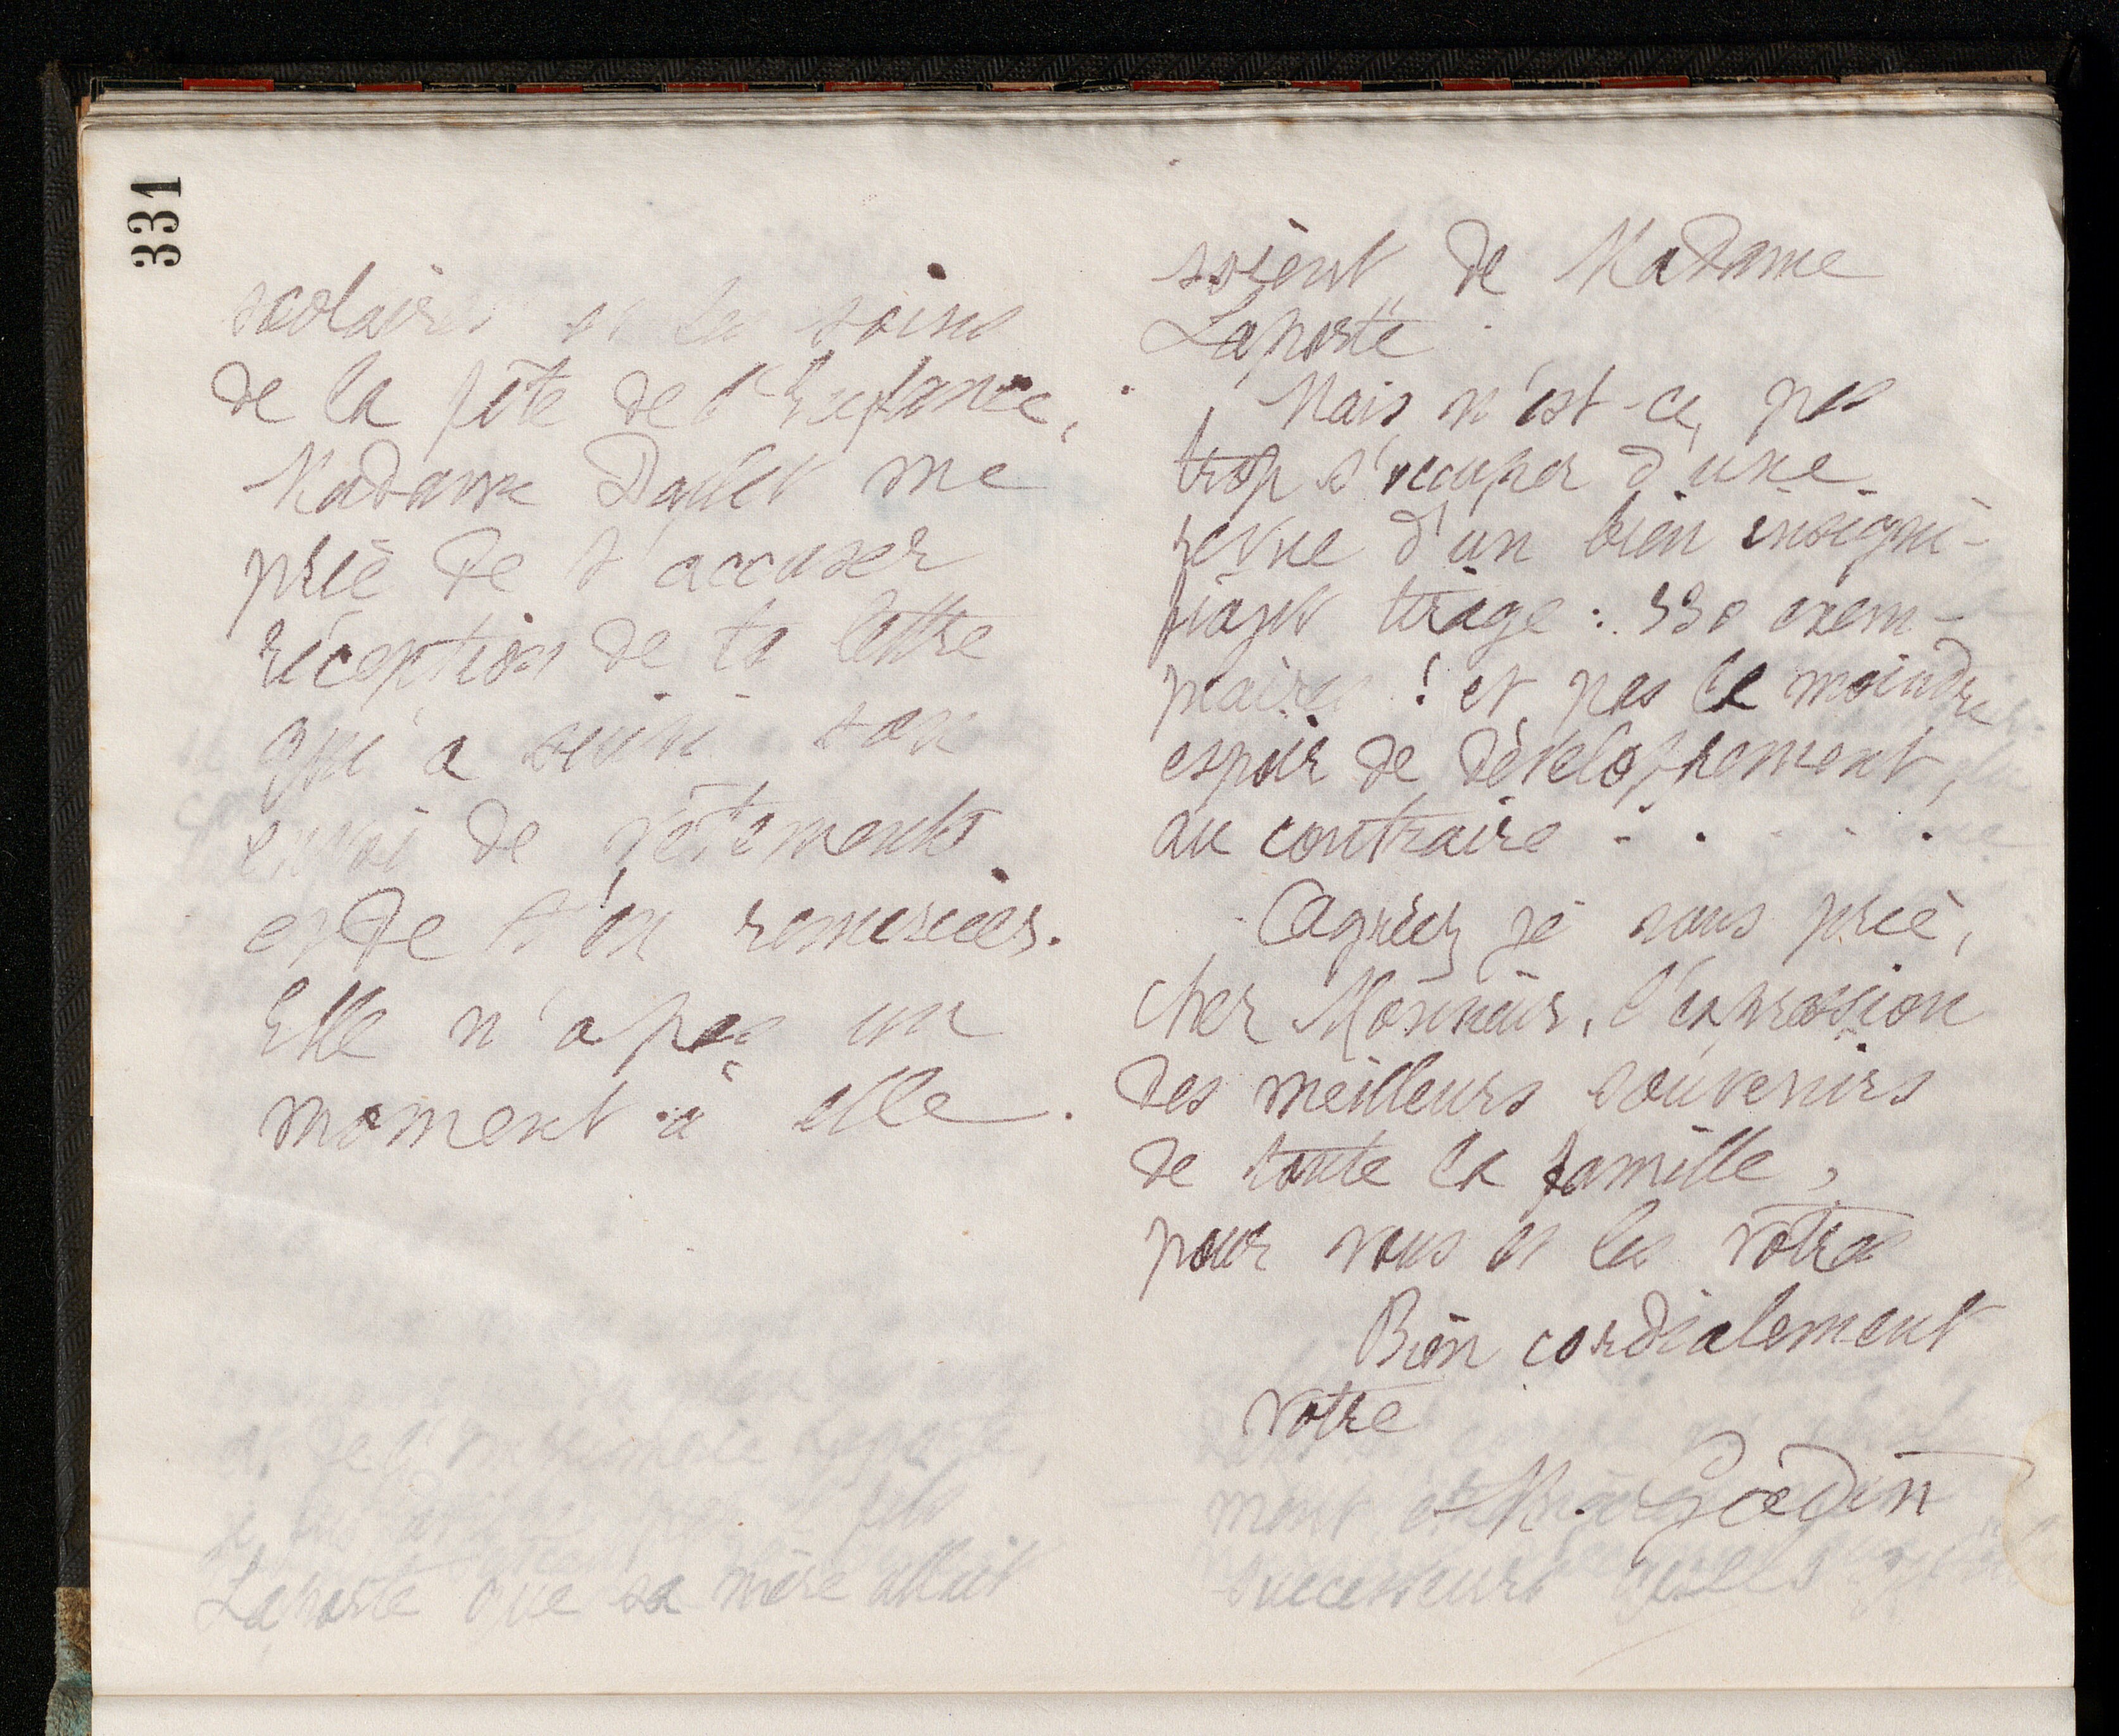 331
scolaires et les soins
de la fête de l'Enfance,
Madame Dallet me
prie de t'accuser
réception de ta lettre
qui a suivi son
envoi de vêtements
et de t'en remercier.
Elle n'a pas un
moment à elle.
soient de Madame
Laporte.
Mais n'est-ce pas
trop s'occuper d'une
revue d'un bien insigni-
fiant tirage : 530 exem-
plaires ! et pas le moindre
espoir de développement,
au contraire . . . . .
Agréez je vous prie,
cher Monsieur, l'expression
des meilleurs souvenirs
de toute la famille,
pour vous et les vôtres
Bien cordialement
votre
M. Godin